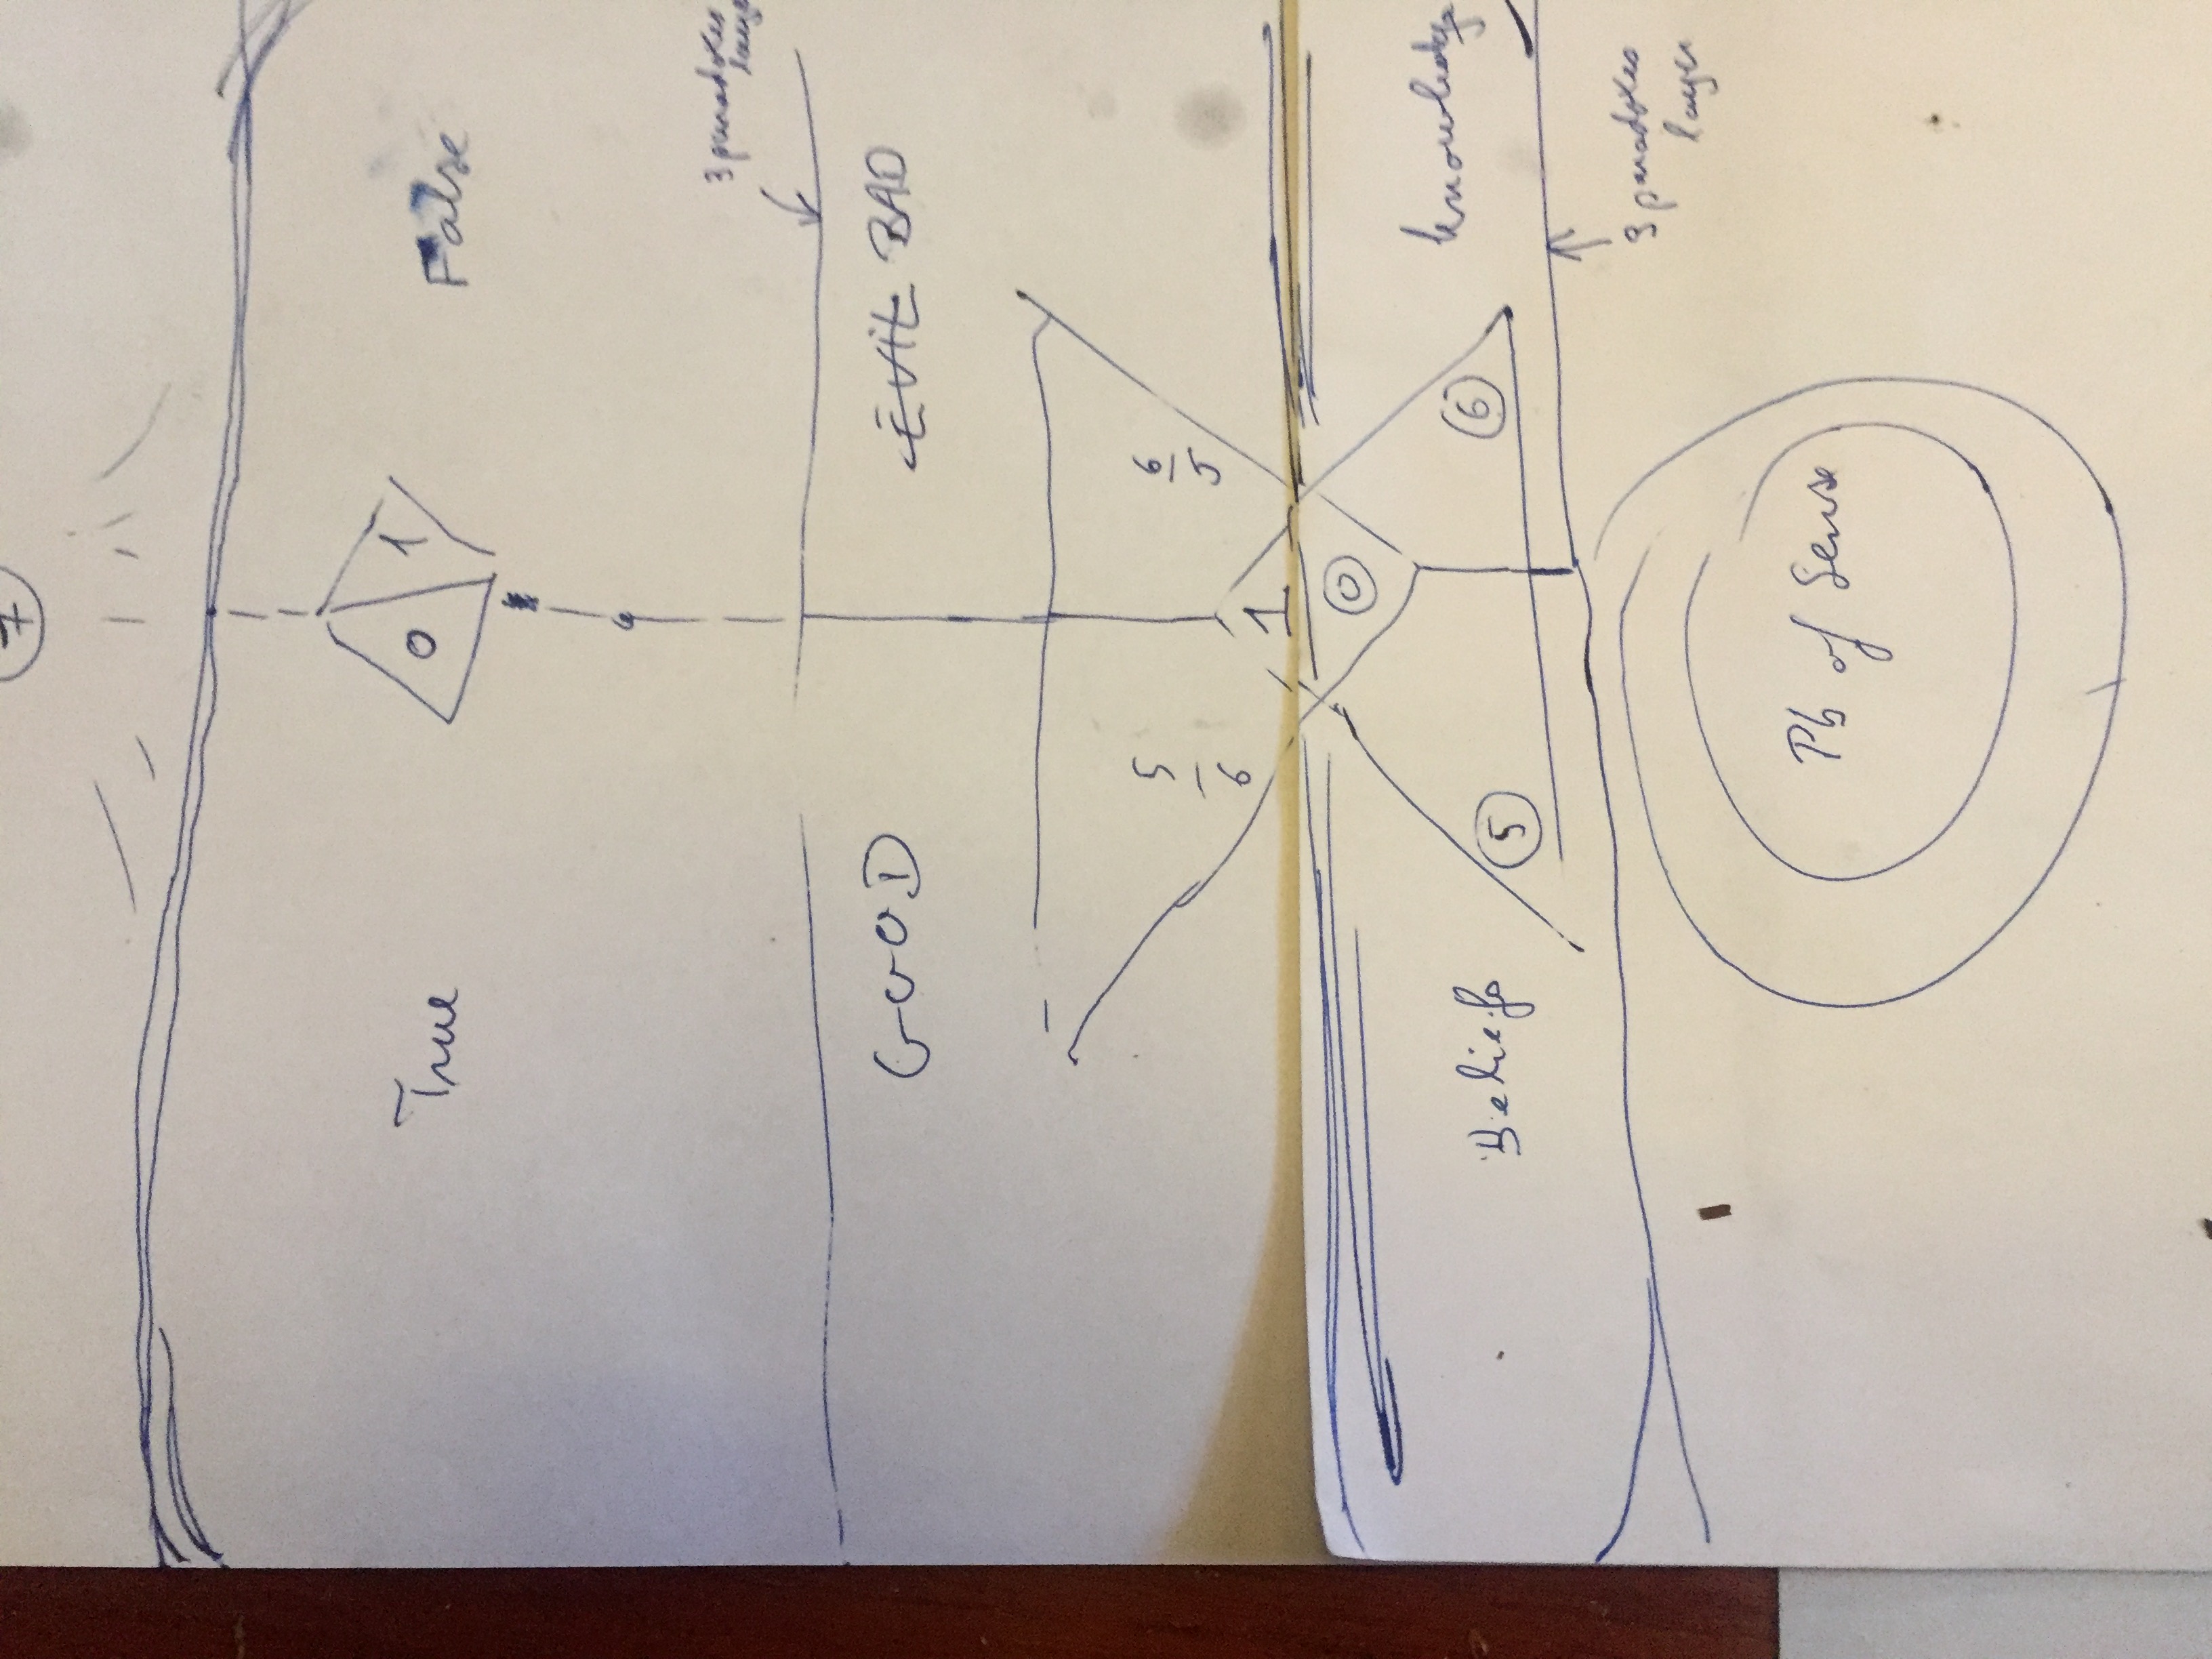 7
True
0
1
False
3 paradoxes
layer
GOOD
EVIL BAD
5
6
6
5
1
0
Beliefs
5
6
knowledge
3 paradoxes
layer
Pb of Sense